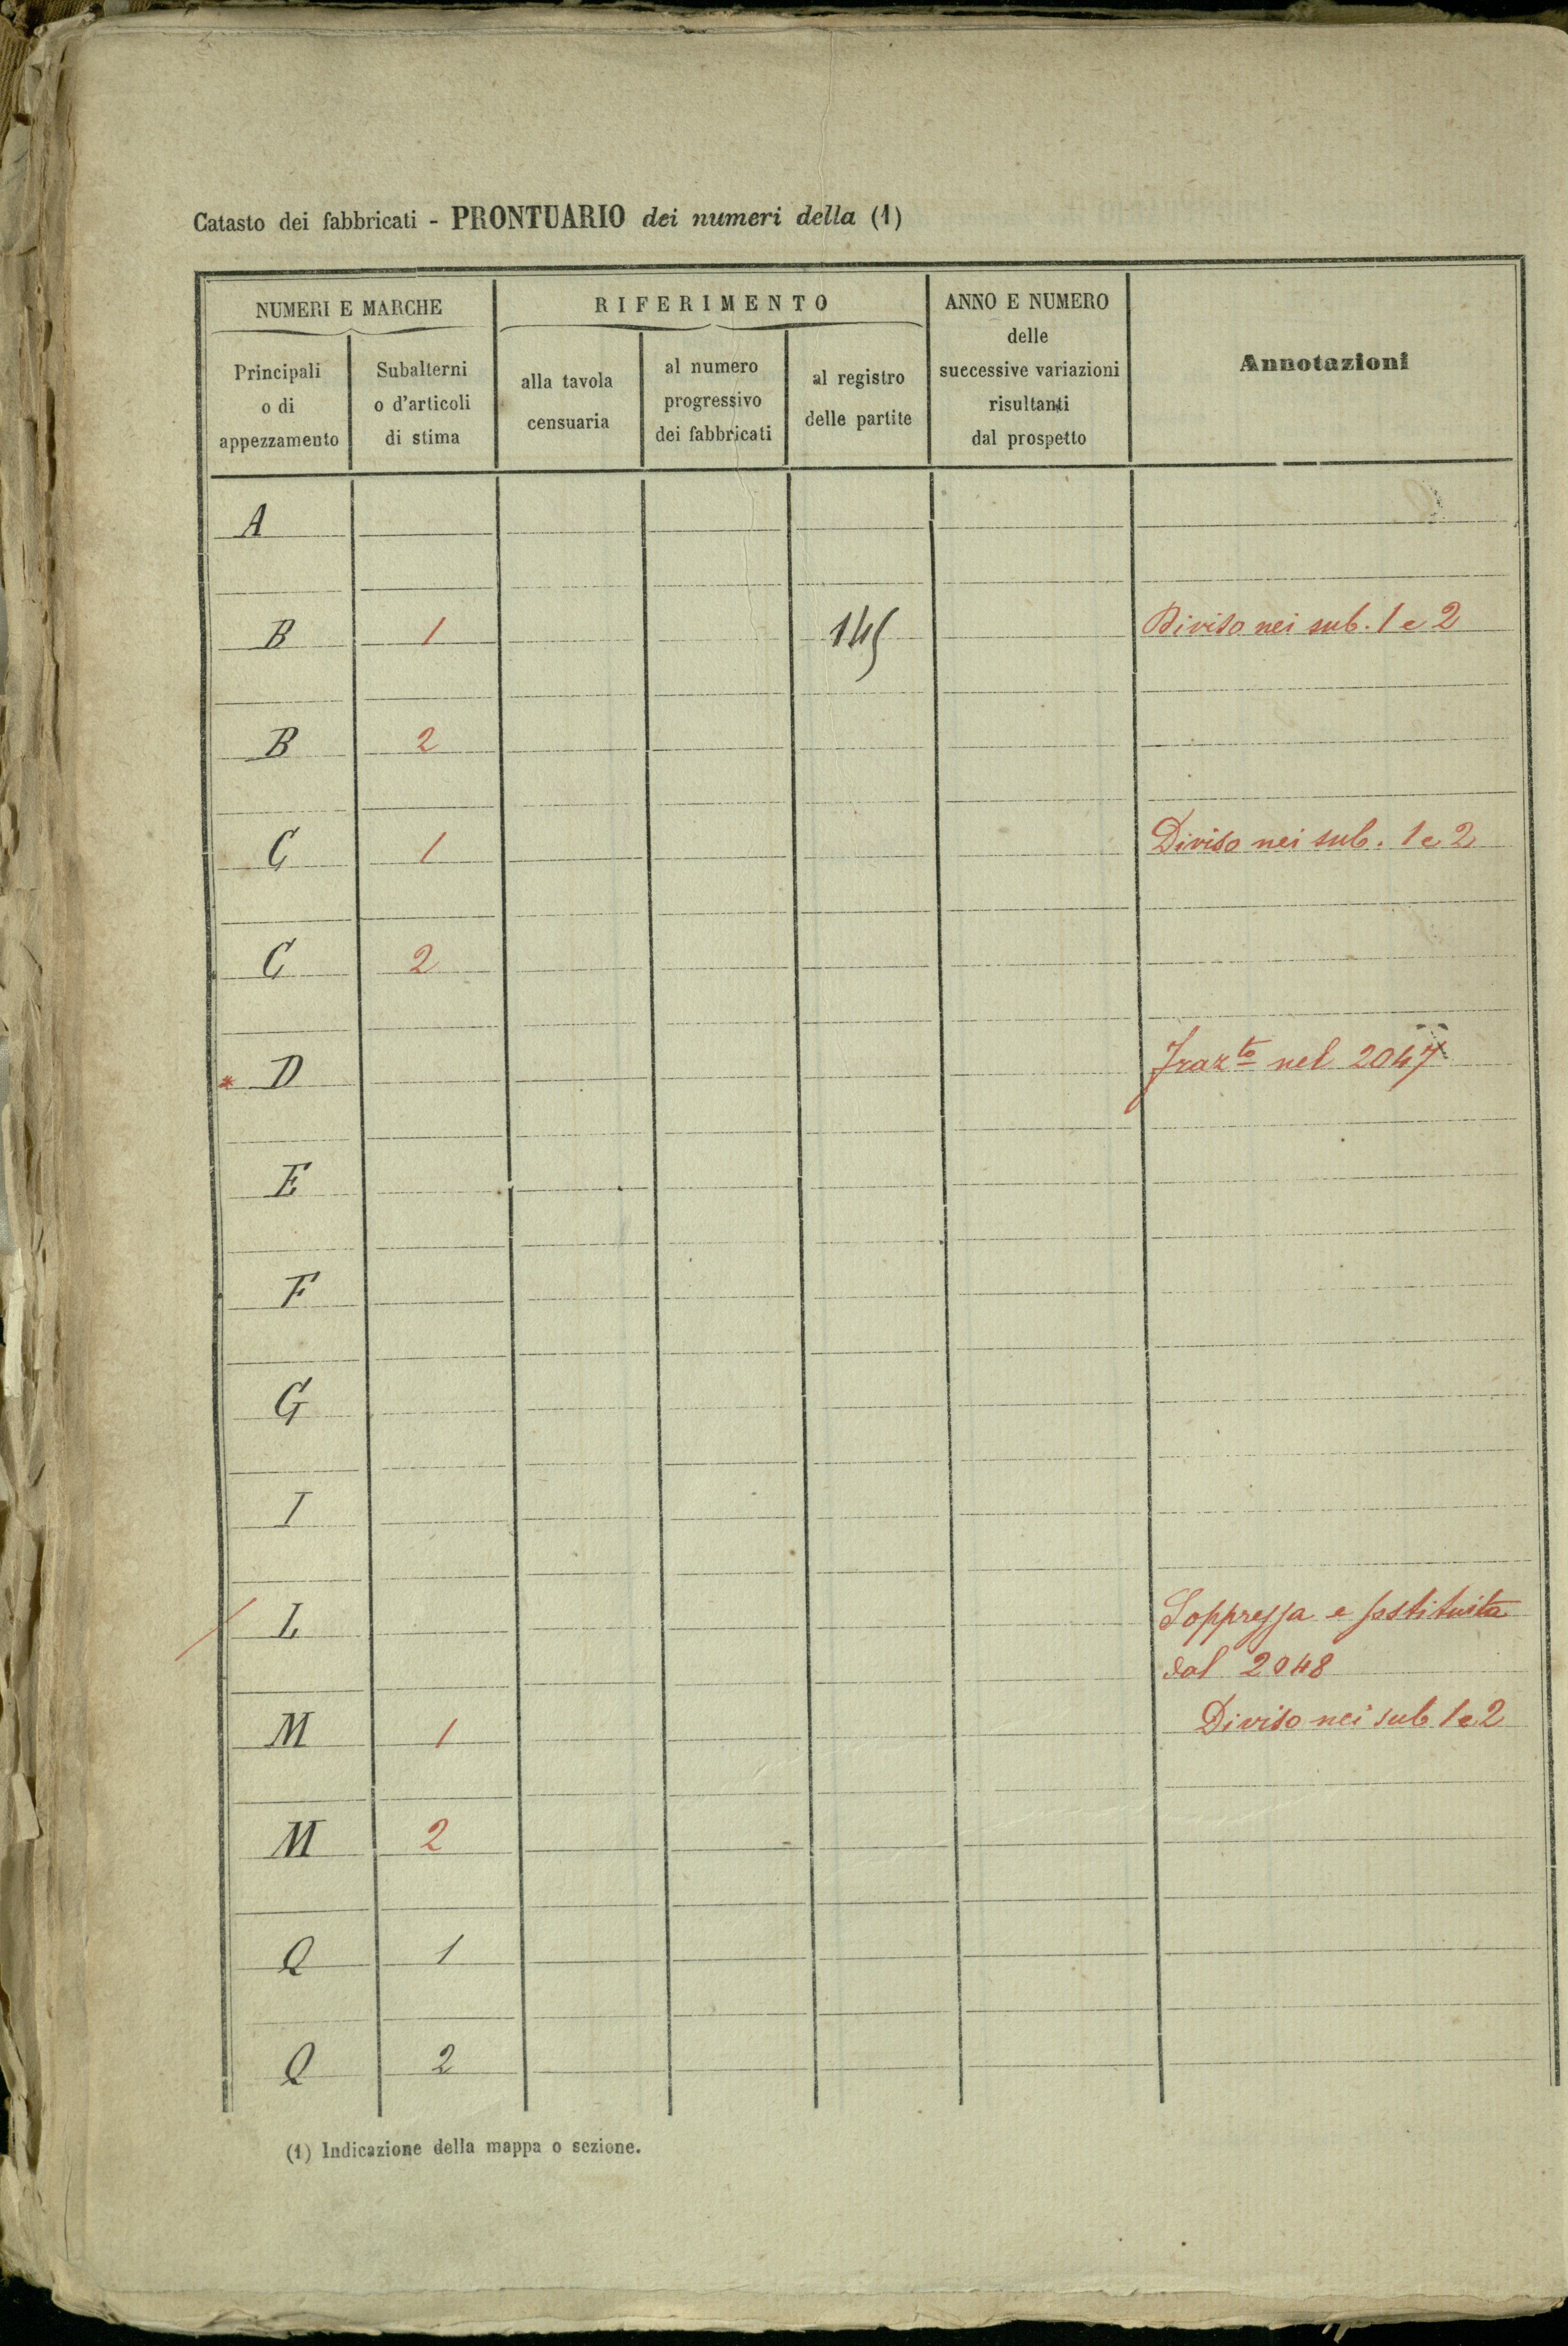 Catasto dei fabbricati - PRONTUARIO dei numeri della (1)
NUMERI E MARCHE
RIFERIMENTO
ANNO E NUMERO
delle
successive variazioni
risultanti
dal prospetto
Annotazioni
Principali
o di
appezzamento
Subalterni
o d'articoli
di stima
alla tavola
censuaria
al numero
progressivo
dei fabbricati
al registro
delle partite
A
B 1 145 Diviso nei sub. 1 e 2
B 2
C 1 Diviso nei sub. 1 e 2
C 2
* D Fraz.to nel 2047
E
F
G
I
L Soppressa e sostituita
dal 2048
M 1 Diviso nei sub 1 e 2
M 2
Q 1
Q 2
(1) Indicazione della mappa o sezione.